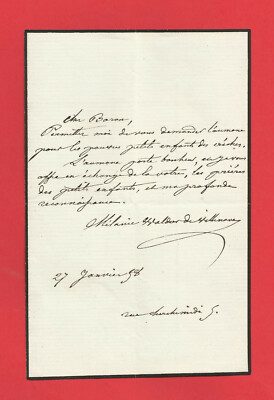 Cher Baron,
Permettez moi de vous demander l'aumone
pour les pauvres petits enfants des crèches.
L'aumone porte bonheur, et je vous
offre en échange de la vôtre, les prières
des petits enfants, et ma profonde
reconnaissance.
Mélanie Waldor de Villenave
27 Janvier 58
rue 5.